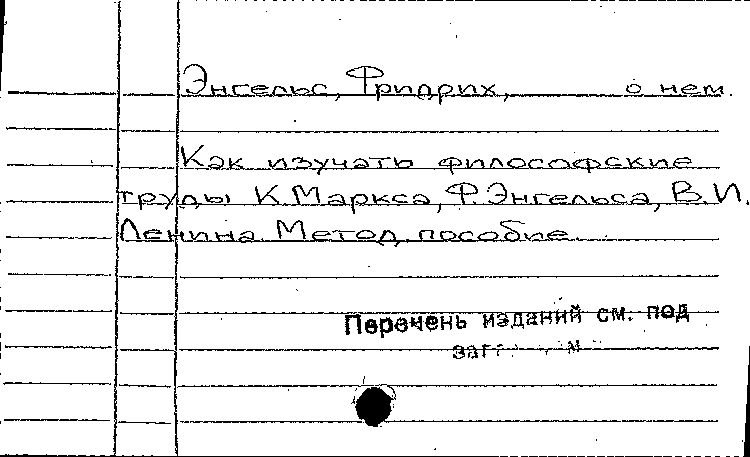 Энгельс, Фридрих, о нем.
Как изучать философские
труды К.Маркса, Ф.Энгельса, В.И.
Ленина. Метод. пособие.
Перечень изданий см. под